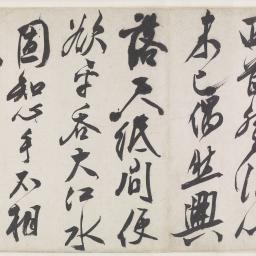 未已偶然興
落尺紙間便
欲平吞大江水
固知心手不相